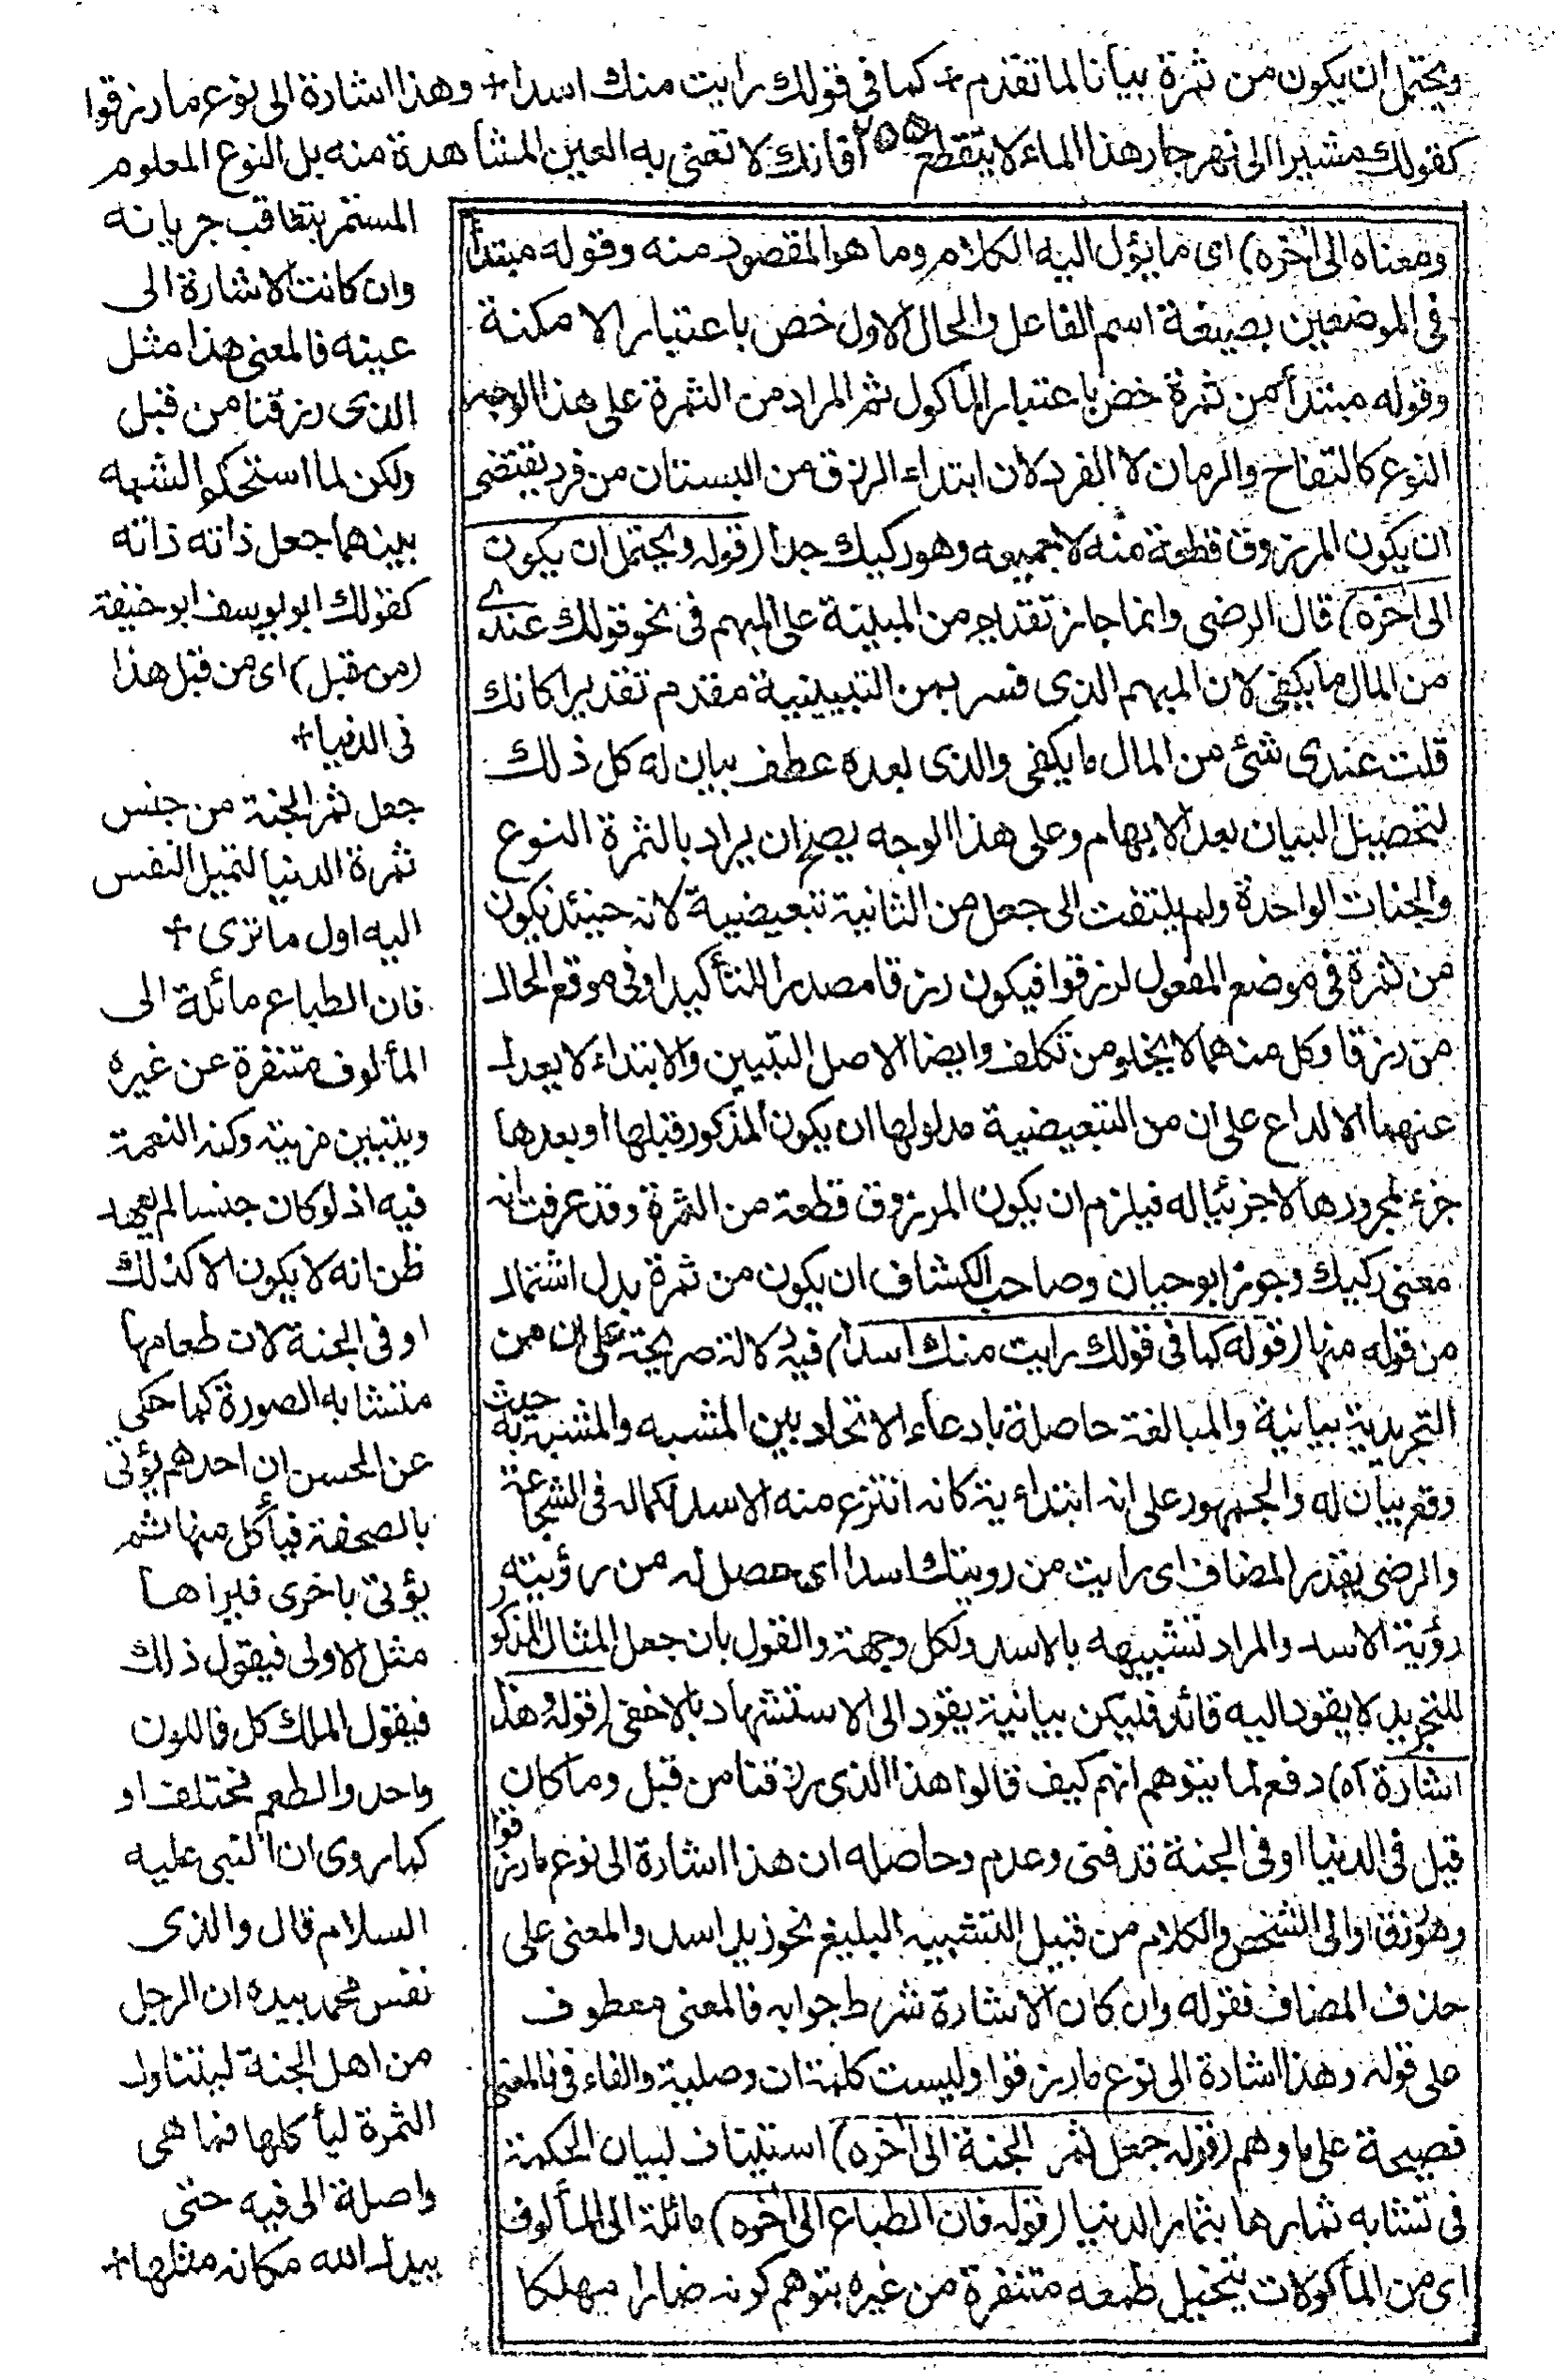 ويحتمل ان يكون من ثمرة بيانا لما تقدم + كما في قولك رايت منك اسدا + وهذا اشارة الى نوع ما رزقوا
كقولك مشيرا الى نهر جار هذا الماء لا ينقطع ٢٥٥ فانك لا تعنى به العين المشاهدة منه بل النوع المعلوم
المستمر بتعاقب جريانه
وان كانت الاشارة الى
عينه فالمعنى هذا مثل
الذى رزقنا من قبل
ولكن لما استحكم الشبه
بينهما جعل ذاته ذاته
كقولك ابو يوسف ابو حنيفة
(من قبل) اى من قبل هذا
فى الدنيا +
جعل ثمر الجنة من جنس
ثمرة الدنيا لتميل النفس
اليه اول ما ترى +
فان الطباع مائلة الى
المألوف متنفرة عن غيره
ويتبين مزيته وكنه النعمة
فيه اذ لو كان جنسا لم يعهد
ظن انه لا يكون الا كذلك
او فى الجنة لان طعامها
متشابه الصورة كما حكى
عن الحسن ان احدهم يؤتى
بالصحفة فيأكل منها ثم
يؤتى باخرى فيراها
مثل الاولى فيقول ذلك
فيقول الملك كل فاللون
واحد والطعم مختلف او
كما روى ان النبى عليه
السلام قال والذى
نفس محمد بيده ان الرجل
من اهل الجنة ليتناول
الثمرة ليأكلها فما هى
واصلة الى فيه حتى
يبدل الله مكانه مثلها +
ومعناه الى اخره) اى ما يؤل اليه الكلام وما هو المقصود منه وقوله مبتدأ
فى الموضعين بصيغة اسم الفاعل والحال الاول خص باعتبار الامكنة
وقوله مبتدأ من ثمرة خص باعتبار المأكول ثم المراد من الثمرة على هذا الوجه
النوع كالتفاح والرمان لا الفرد لان ابتداء الرزق من البستان من فرد يقتضى
ان يكون المرزوق قطعة منه لا جميعه وهو ركيك جدا (قوله ويحتمل ان يكون
الى اخره) قال الرضى وانما جاز تقديم من المبينة على المبهم فى نحو قولك عندى
من المال ما يكفى لان المبهم الذى فسر بمن التبيينية مقدم تقديرا كانك
قلت عندى شئ من المال ما يكفى والذى بعده عطف بيان له كل ذلك
لتحصيل البيان بعد الابهام وعلى هذا الوجه يصح ان يراد بالثمرة النوع
والجنات الواحدة ولم يلتفت الى جعل من الثانية تبعيضية لانه حينئذ يكون
من ثمرة فى موضع المفعول لرزقوا فيكون رزقا مصدرا للتأكيد او فى موقع الحال
من رزقا وكل منهما لا يخلو من تكلف وايضا الاصل التبيين والابتداء لا يعدل
عنهما الا لداع على ان من التبعيضية مدلولها ان يكون المذكور قبلها او بعدها
جزء لمجرورها لا جزئيا له فيلزم ان يكون المرزوق قطعة من الثمرة وقد عرفت انه
معنى ركيك وجوز ابو حيان وصاحب الكشاف ان يكون من ثمرة بدل اشتمال
من قوله منها (قوله كما فى قولك رايت منك اسدا) فيه دلالة صريحة على ان من
التجريدية بيانية والمبالغة حاصلة بادعاء الاتحاد بين المشبه والمشبه به حيث
وقع بيان له والجمهور على انه ابتدائية كانه انتزع منه الاسد لكماله فى الشجاعة
والرضى يقدر المضاف اى رايت من رويتك اسدا اى حصل له من رؤيته
رؤية الاسد والمراد تشبيهه بالاسد ولكل وجهة والقول بان جعل المثال المذكور
للتجريد لا يقود اليه قائد فليكن بيانية يقود الى الاستشهاد بالاخفى (قوله وهذا
اشارة اه) دفع لما يتوهم انهم كيف قالوا هذا الذى رزقنا من قبل وما كان
قبل فى الدنيا او فى الجنة قد فنى وعدم وحاصله ان هذا اشارة الى نوع ما رزقوا
وهو زق او الى الشخص والكلام من قبيل التشبيه البليغ نحو زيد اسد والمعنى على
حذف المضاف فقوله وان كان الاشارة شرط جوابه فالمعنى معطوف
على قوله وهذا اشارة الى نوع ما رزقوا وليست كلمة ان وصلية والفاء فى فالمعنى
فصيحة على ما وهم (قوله جعل ثمر الجنة الى اخره) استيناف لبيان الحكمة
فى تشابه ثمارها بثمار الدنيا (قوله فان الطباع الى اخره) مائلة الى المألوف
اى من المأكولات بتخيل طعمه متنفرة من غيره بتوهم كونه ضارا مهلكا